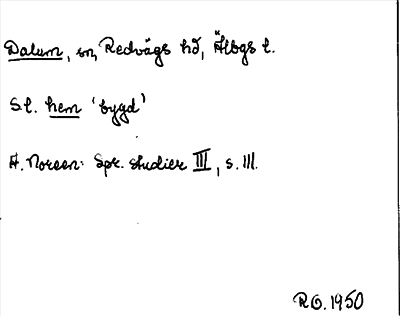 Dalum, sn, Redvägs hd, Älvbgs l.
S.l. hem 'bygd'
A. Noreen: Spr. studier III, s. 111.
R Ö. 1950